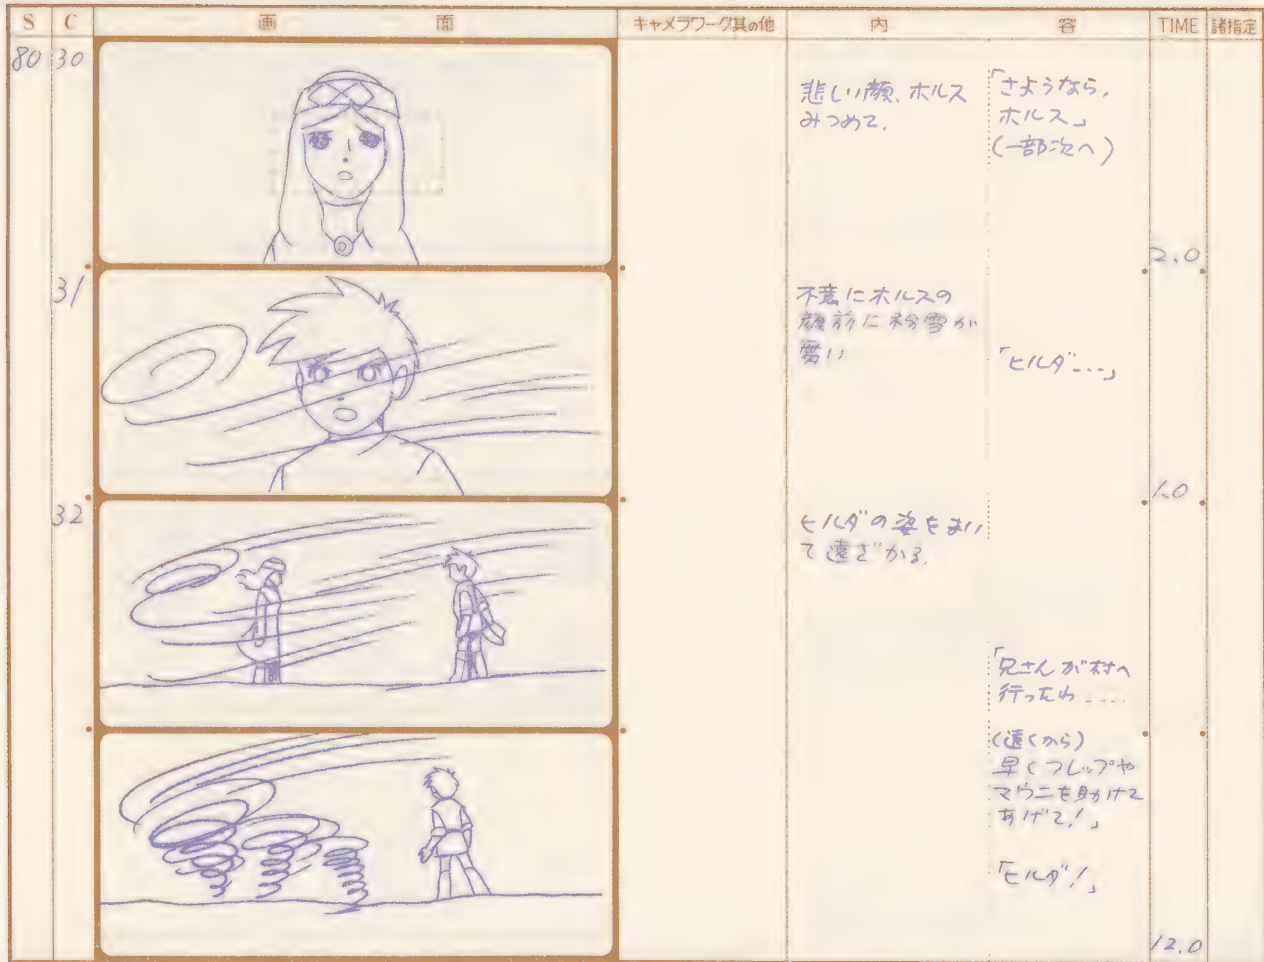 S C 画面 キャメラワーク其の他 内容 TIME 諸指定
80 30
悲しい顔、ホルス
みつめて、
「さようなら、
ホルス」
(一部次へ)
2.0
31
不意にホルスの
顔前に粉雪が
舞い
「ヒルダ...」
1.0
32
ヒルダの姿をまい
て遠ざかる。
「兄さんが村へ
行ったわ....
(遠くから)
早くフレップや
マウニを助けて
あげて!」
「ヒルダ!」
12.0